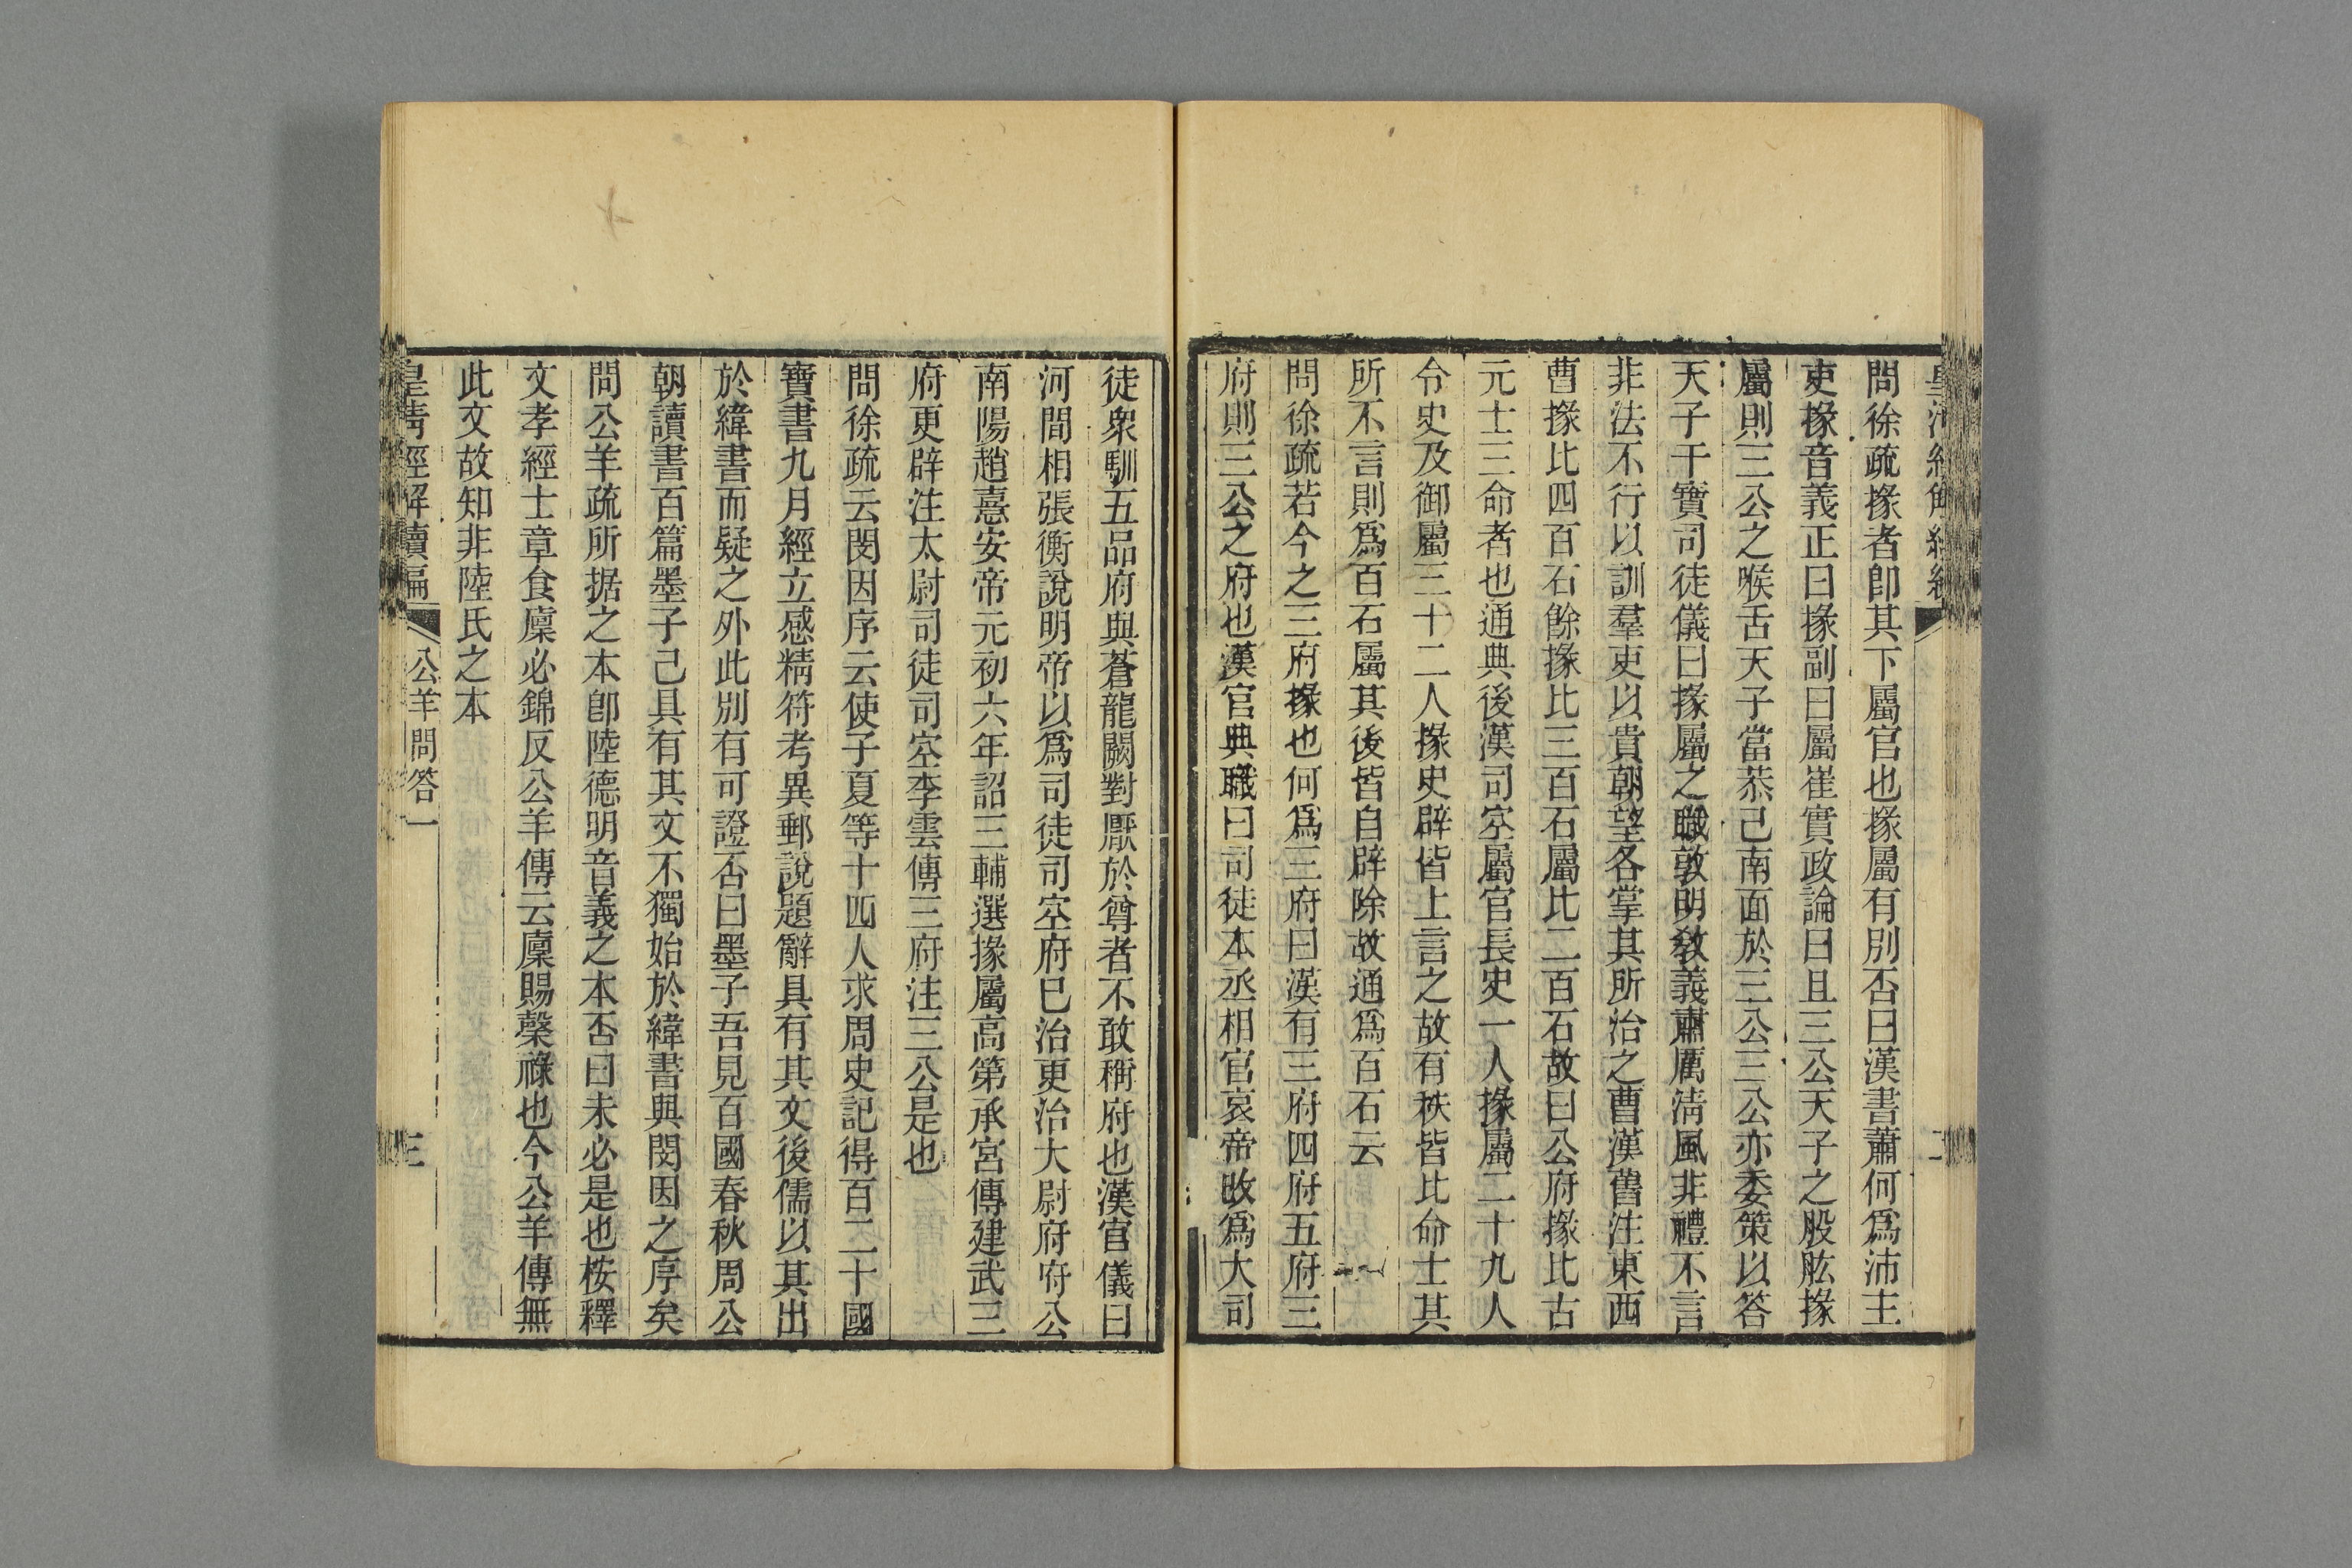 問徐疏掾者卽其下屬官也掾屬有別否曰漢書蕭何爲沛主
吏掾音義正曰掾副曰屬崔實政論曰且三公天子之股肱掾
屬則三公之喉舌天子當恭己南面於三公三公亦委策以答
天子干寶司徒儀曰掾屬之職敦明敎義肅厲淸風非禮不言
非法不行以訓羣吏以貴朝望各掌其所治之曹漢舊注東西
曹掾比四百石餘掾比三百石屬比二百石故曰公府掾比古
元士三命者也通典後漢司空屬官長史一人掾屬二十九人
令史及御屬三十二人掾史辟皆上言之故有秩皆比命士其
所不言則爲百石屬其後皆自辟除故通爲百石云
問徐疏若今之三府掾也何爲三府曰漢有三府四府五府三
府則三公之府也漢官典職曰司徒本丞相官哀帝改爲大司
徒衆馴五品府與蒼龍闕對厭於尊者不敢稱府也漢官儀曰
河間相張衡說明帝以爲司徒司空府已治更治大尉府府公
南陽趙憙安帝元初六年詔三輔選掾屬高第承宮傳建武三
府更辟注太尉司徒司空李雲傳三府注三公是也
問徐疏云閔因序云使子夏等十四人求周史記得百二十國
寶書九月經立感精符考異郵說題辭具有其文後儒以其出
於緯書而疑之外此別有可證否曰墨子吾見百國春秋周公
朝讀書百篇墨子己具有其文不獨始於緯書與閔因之序矣
問公羊疏所据之本卽陸德明音義之本否曰未必是也桉釋
文孝經士章食稟必錦反公羊傳云稟賜穀祿也今公羊傳無
此文故知非陸氏之本
皇淸經解續編
公羊問答一
三